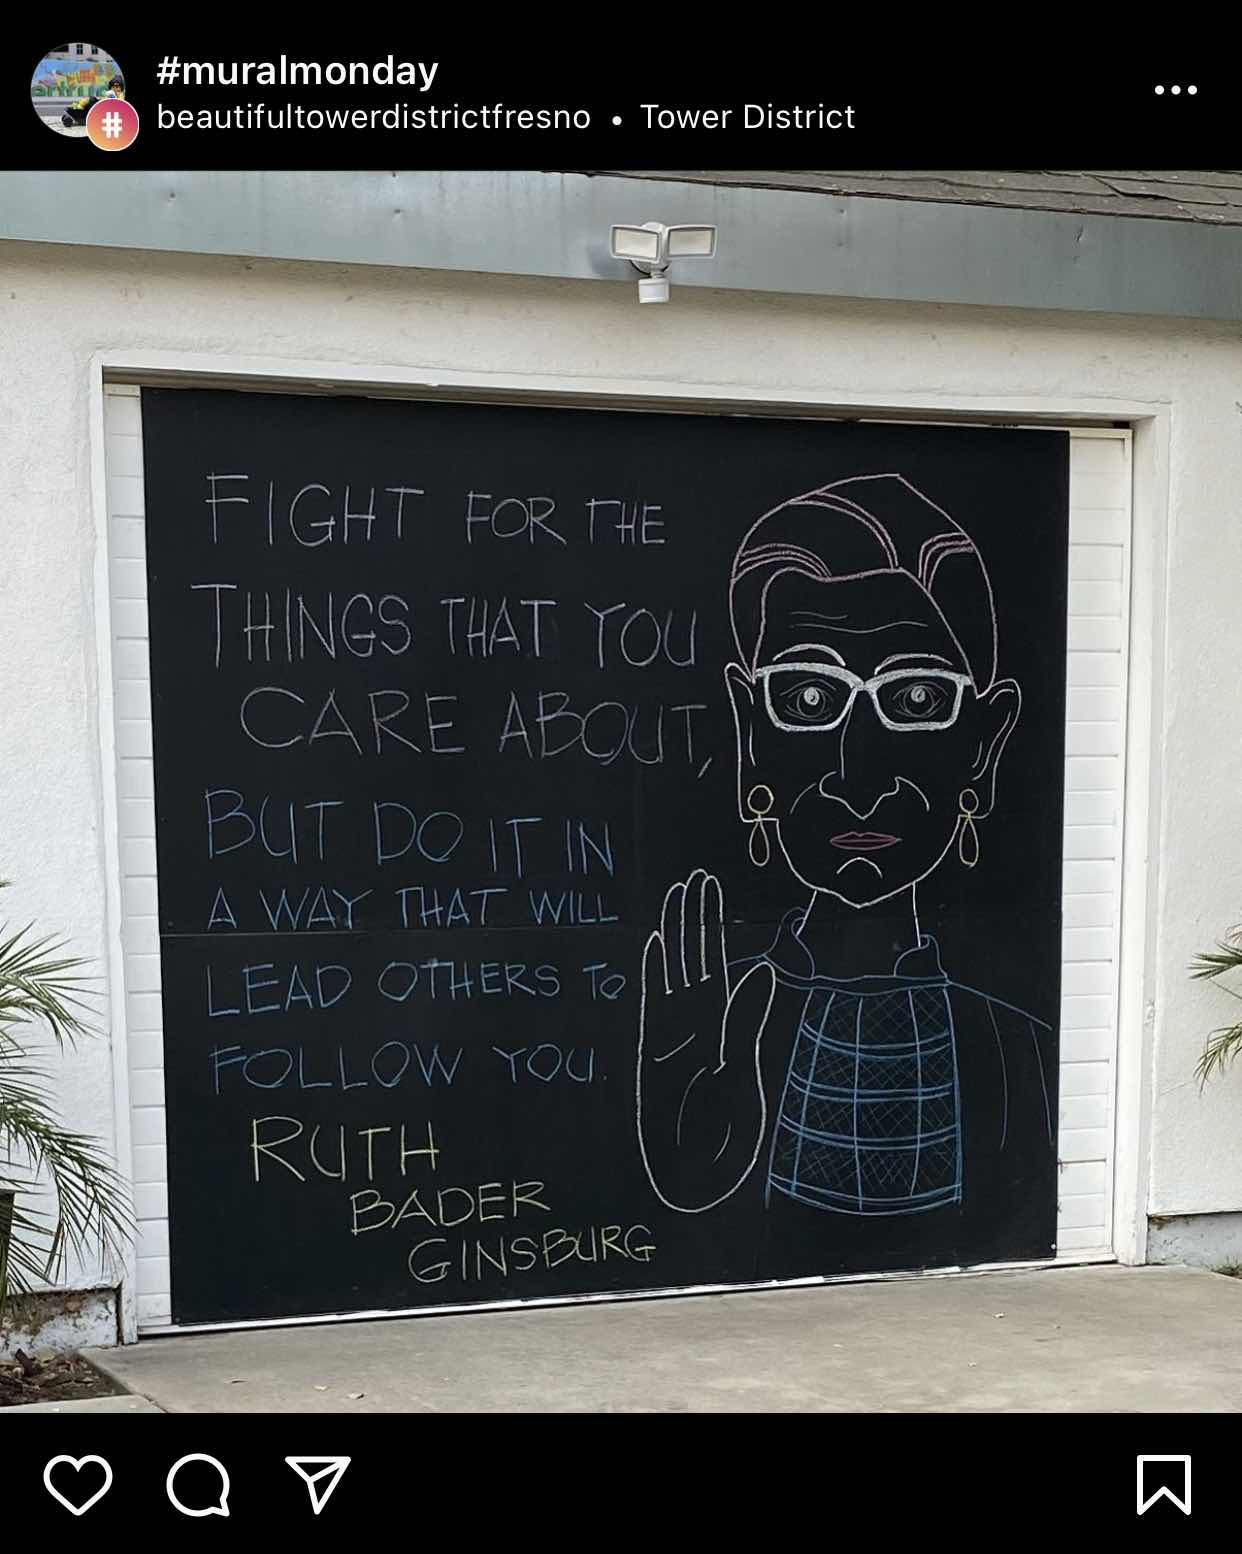 #muralmonday
beautifultowerdistrictfresno • Tower District
FIGHT FOR THE
THINGS THAT YOU
CARE ABOUT,
BUT DO IT IN
A WAY THAT WILL
LEAD OTHERS TO
FOLLOW YOU.
RUTH
BADER
GINSBURG